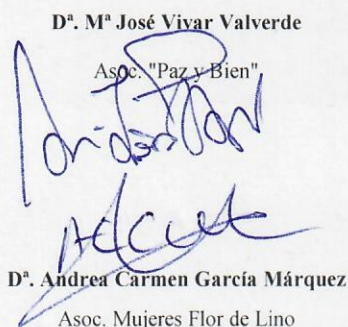 Dª. Mª José Vivar Valverde
Asoc. "Paz y Bien"
Dª. Andrea Carmen García Márquez
Asoc. Mujeres Flor de Lino